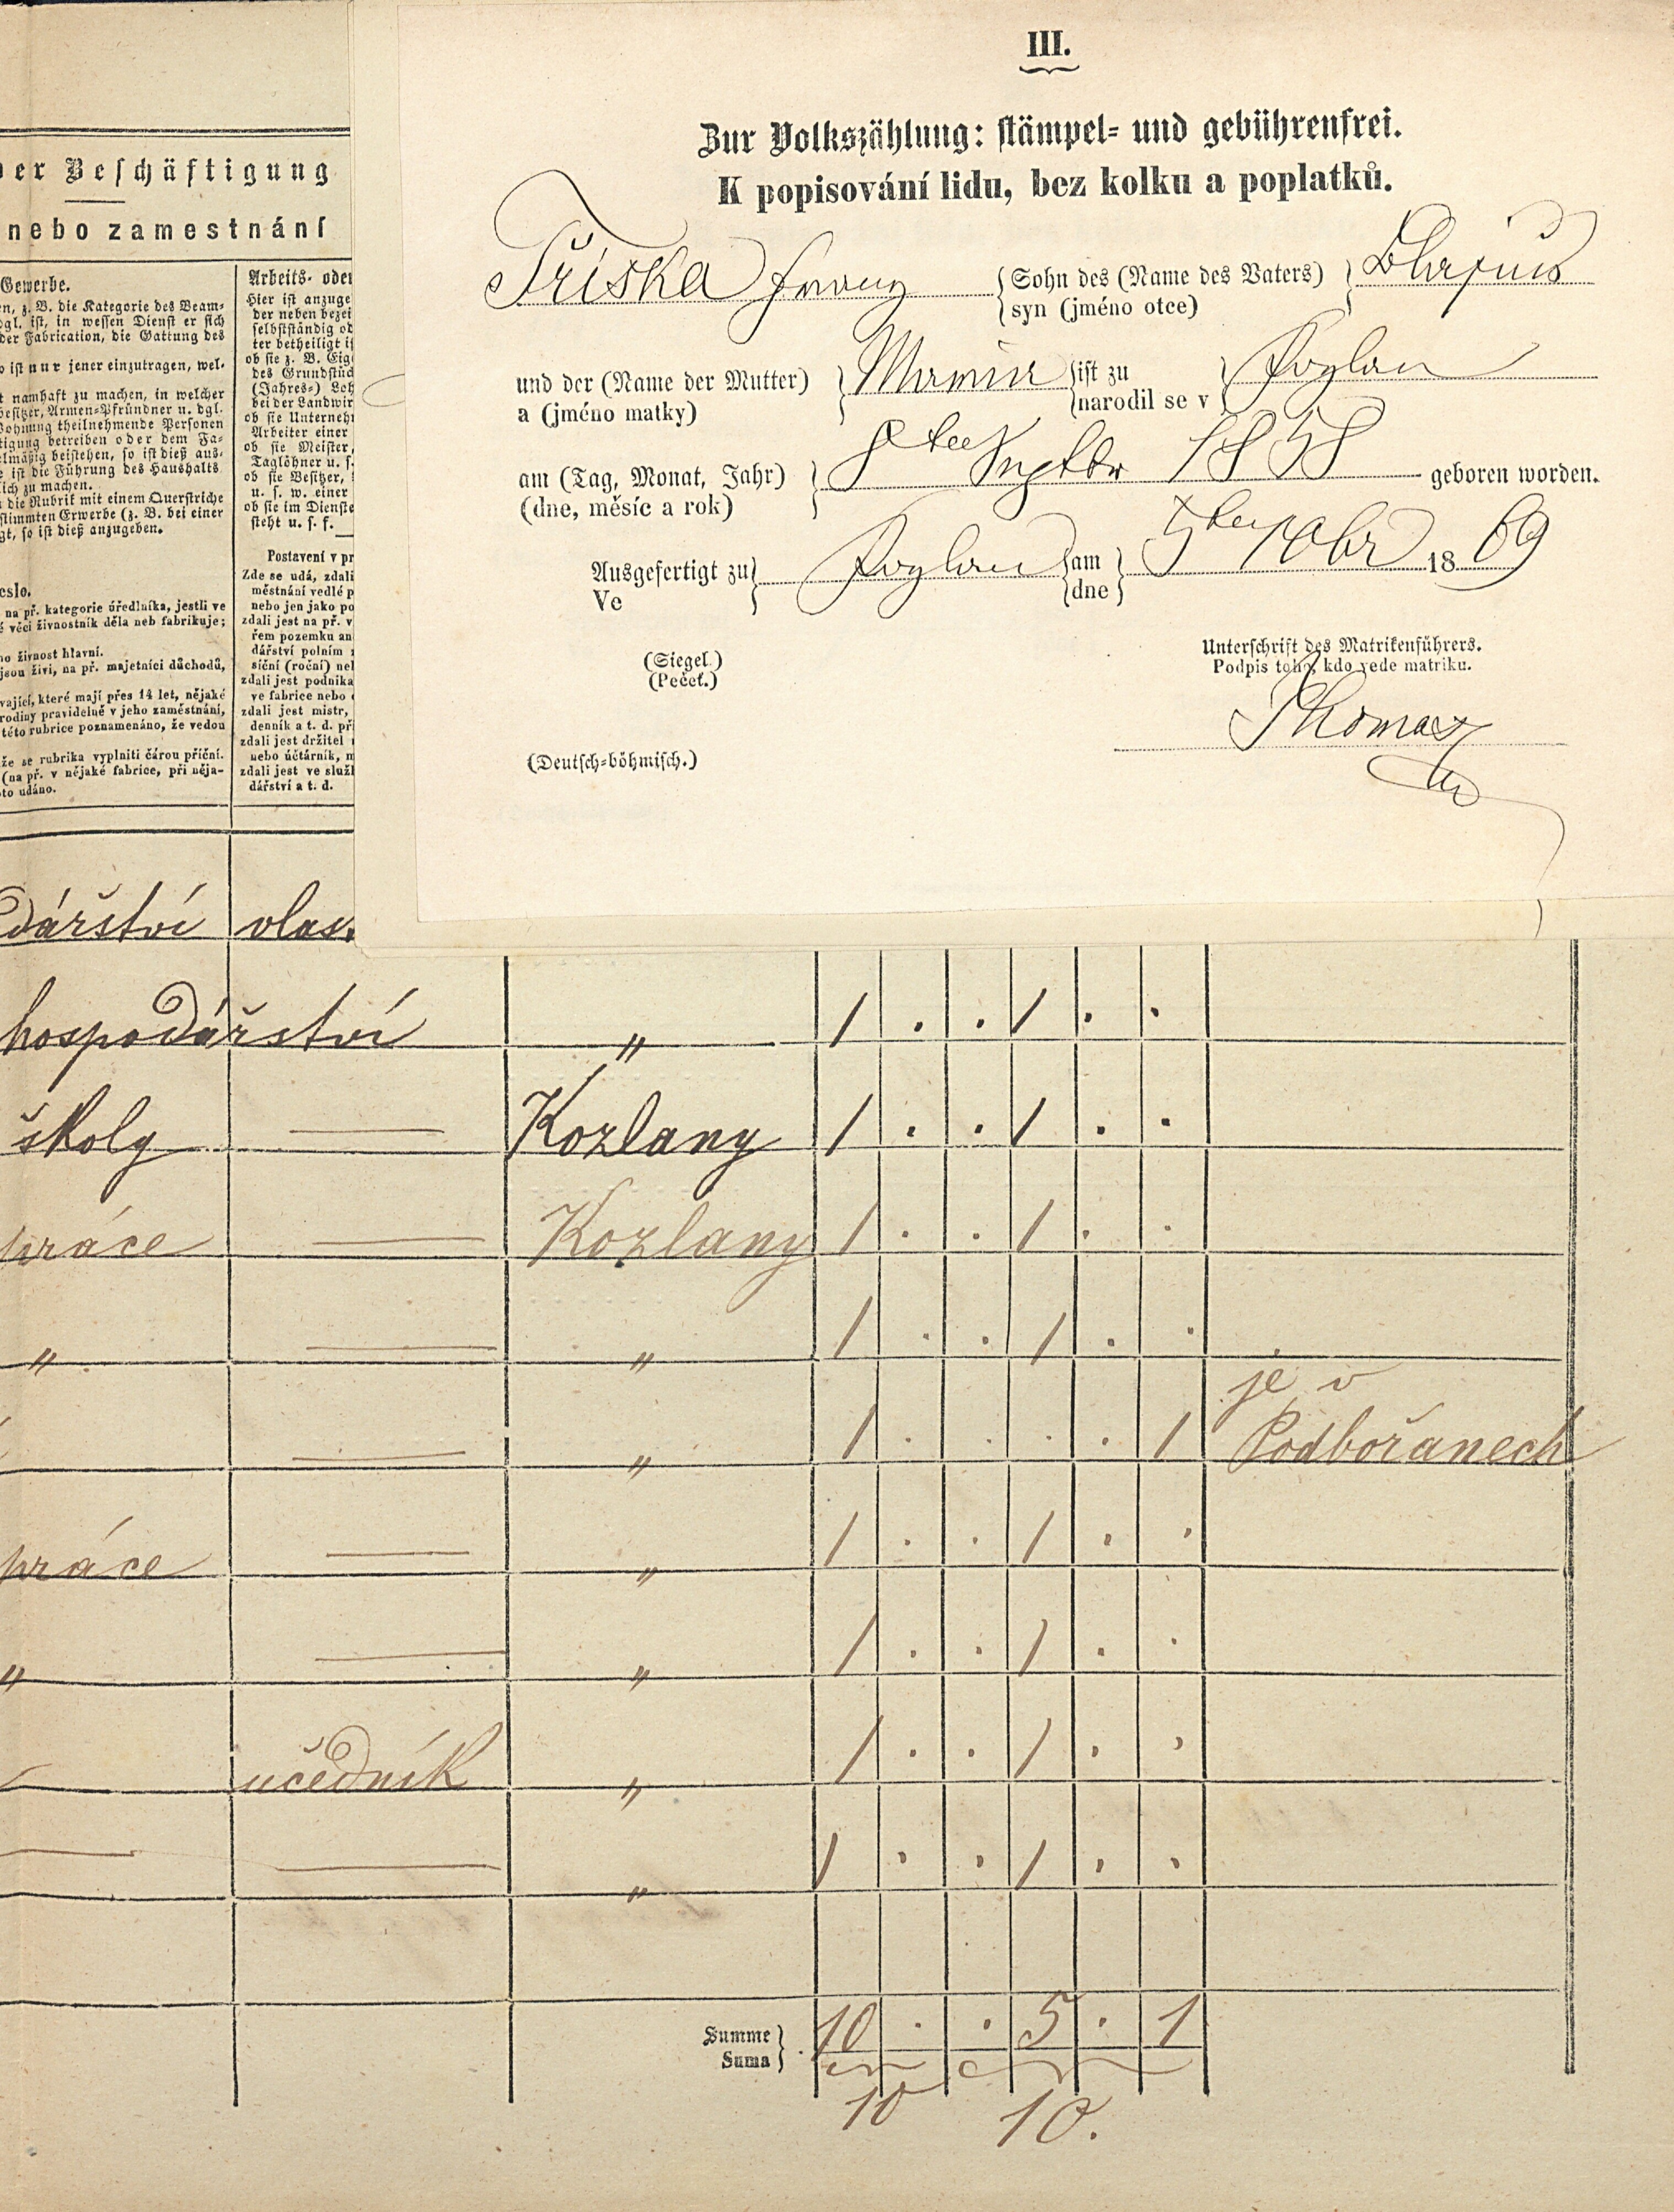 III.
Zur Volkszählung: stämpel- und gebührenfrei.
K popisování lidu, bez kolku a poplatků.
Tříska Franz { Sohn des (Name des Vaters) }
syn (jméno otce)
und der (Name der Mutter) } { ist zu } Kozlan
a (jméno matky) narodil se v
am (Tag, Monat, Jahr) } 8ten 1858 geboren worden.
(dne, měsíc a rok)
Ausgefertigt zu } Kozlan { am } 5ten 10br 1869
Ve dne
(Siegel.)
(Pečeť.)
Unterschrift des Matrikenführers.
Podpis toho, kdo vede matriku.
Thomas
(Deutsch-böhmisch.)
der Beschäftigung
nebo zamestnání
Gewerbe.
en, z. B. die Kategorie des Beam-
dgl. ist, in wessen Dienst er sich
der Fabrication, die Gattung des
o ist nur jener einzutragen, wel-
t namhaft zu machen, in welcher
besitzer, Armen-Pfründner u. dgl.
Wohnung theilnehmende Personen
tigung betreiben oder dem Fa-
elmäßig beistehen, so ist dieß aus-
e ist die Führung des Haushalts
lich zu machen.
die Rubrik mit einem Querstriche
stimmten Erwerbe (z. B. bei einer
gt, so ist dieß anzugeben.
eslo.
na př. kategorie úředlníka, jestli ve
é věci živnostník děla neb fabrikuje;
ho živnost hlavní.
jsou živi, na př. majetníci důchodů,
vající, které mají přes 14 let, nějaké
rodiny pravidelně v jeho zaměstnání,
této rubrice poznamenáno, že vedou
že se rubrika vyplniti čárou příční.
(na př. v nějaké fabrice, při něja-
to udáno.
Arbeits- oder
Hier ist anzuge
der neben bezei
selbstständig od
ter betheiligt i
ob sie z. B. Eig
des Grundstüc
(Jahres-) Loh
bei der Landwir
ob sie Unterneh
Arbeiter einer
ob sie Meister,
Taglöhner u. s.
ob sie Besitzer,
u. s. w. einer
ob sie im Dienste
steht u. s. f.
Postavení v pr
Zde se udá, zdali
městnání vedlé p
nebo jen jako po
zdali jest na př. v
řem pozemku an
dářství polním
síční (roční) nel
zdali jest podnika
ve fabrice nebo
zdali jest mistr,
denník a t. d. př
zdali jest držitel
nebo účtárník, n
zdali jest ve služb
dářství a t. d.
dářství vlas.
hospodářství " 1 . . 1 . .
školy — Kozlany 1 . . 1 . .
práce — Kozlany 1 . . 1 . .
" — " 1 . . 1 . .
je v
— " 1 . . . . 1 Podbořanech
práce — " 1 . . 1 . .
" — " 1 . . 1 . .
učedník " 1 . . 1 . .
— — " 1 . . 1 . .
Summe } 10 . . 5 . 1
Suma
10 10.